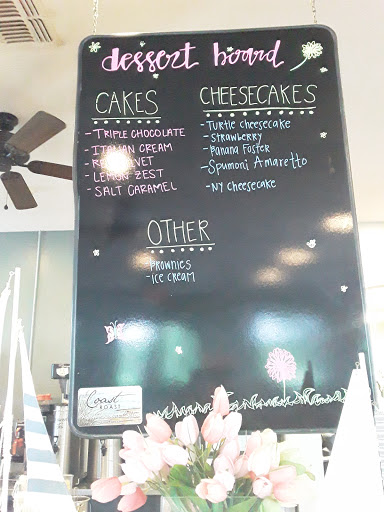 dessert board
CAKES
- TRIPLE CHOCOLATE
- ITALIAN CREAM
- RED VELVET
- LEMON ZEST
- SALT CARAMEL
CHEESECAKES
- Turtle cheesecake
- Strawberry
- Banana Foster
- Spumoni Amaretto
- NY cheesecake
OTHER
- BROWNIES
- ICE CREAM
Coast
ROAST